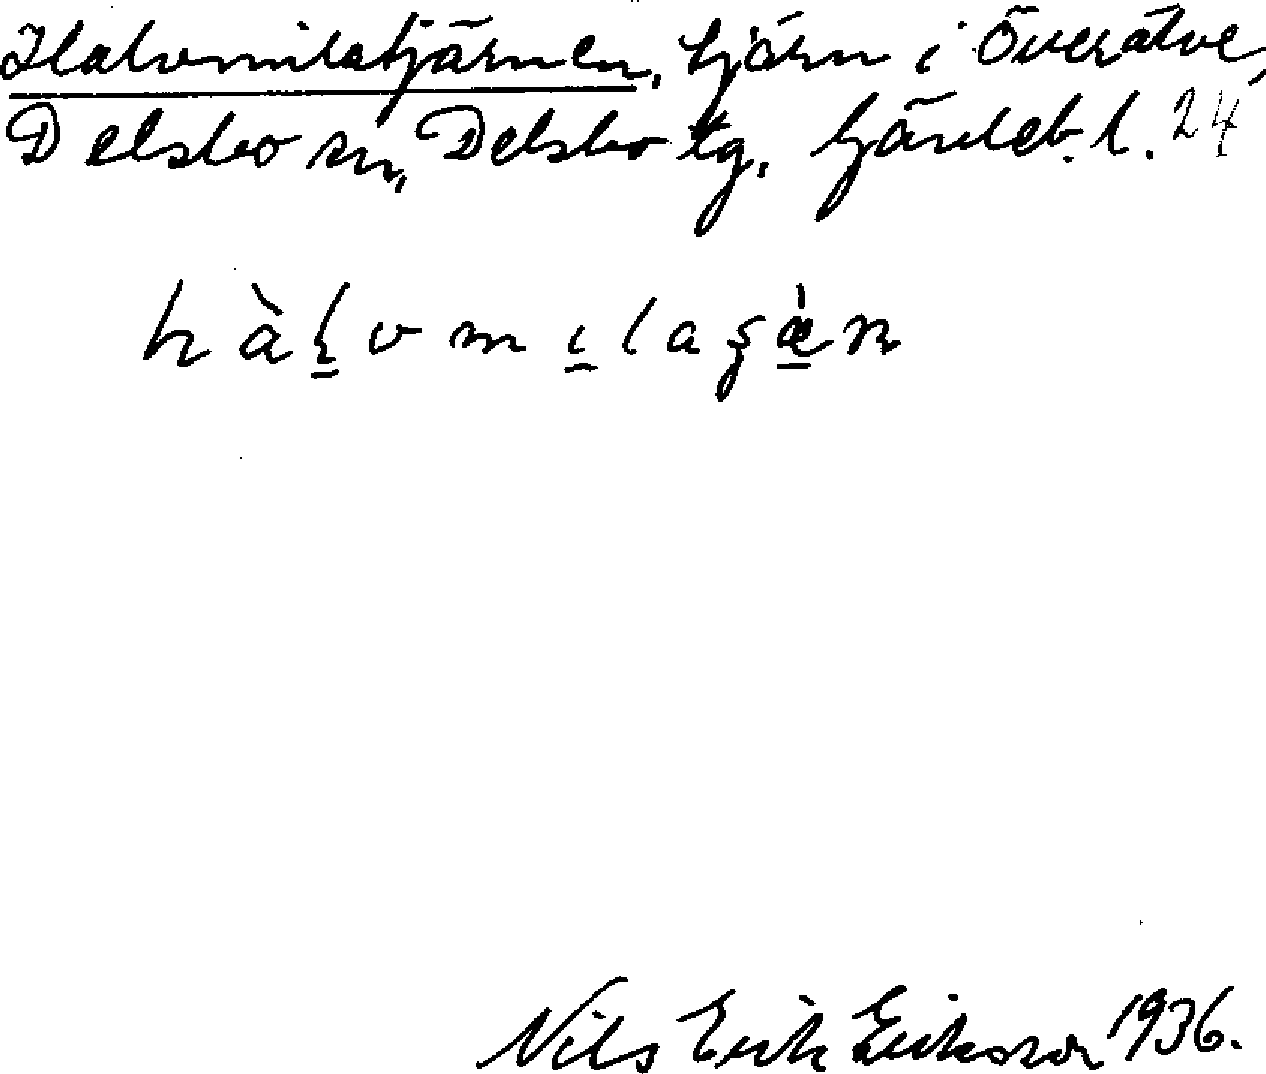 Halvmilatjärnen, tjärn i Överälve,
Delsbo sn, Delsbo tg, Gävleb. l. 24
hàl̠vmi̠laʂæ̠̀n
Nils Erik Eriksson 1936.